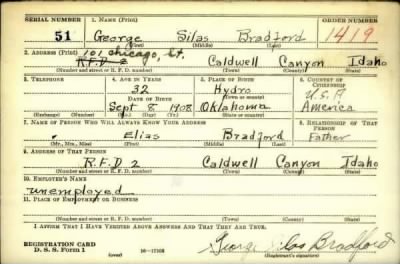 SERIAL NUMBER 1. NAME (Print) ORDER NUMBER
51 George Silas Bradford 1419
(First) (Middle) (Last)
2. ADDRESS (Print) 101 Chicago, St.
R.F.D 2 Caldwell Canyon Idaho
(Number and street or R. F. D. number) (Town) (County) (State)
3. TELEPHONE 4. AGE IN YEARS 5. PLACE OF BIRTH 6. COUNTRY OF CITIZENSHIP
32 Hydro U.S.A
DATE OF BIRTH (Town or county)
Sept 8 1908 Oklahoma America
(Exchange) (Number) (Mo.) (Day) (Yr.) (State or country)
7. NAME OF PERSON WHO WILL ALWAYS KNOW YOUR ADDRESS 8. RELATIONSHIP OF THAT PERSON
Elias Bradford Father
(Mr., Mrs., Miss) (First) (Middle) (Last)
9. ADDRESS OF THAT PERSON
R.F.D 2 Caldwell Canyon Idaho
(Number and street or R. F. D. number) (Town) (County) (State)
10. EMPLOYER'S NAME
unemployed
11. PLACE OF EMPLOYMENT OR BUSINESS
(Number and street or R. F. D. number) (Town) (County) (State)
I AFFIRM THAT I HAVE VERIFIED ABOVE ANSWERS AND THAT THEY ARE TRUE.
REGISTRATION CARD
D. S. S. Form 1 (over) George Silas Bradford
(Registrant's signature)